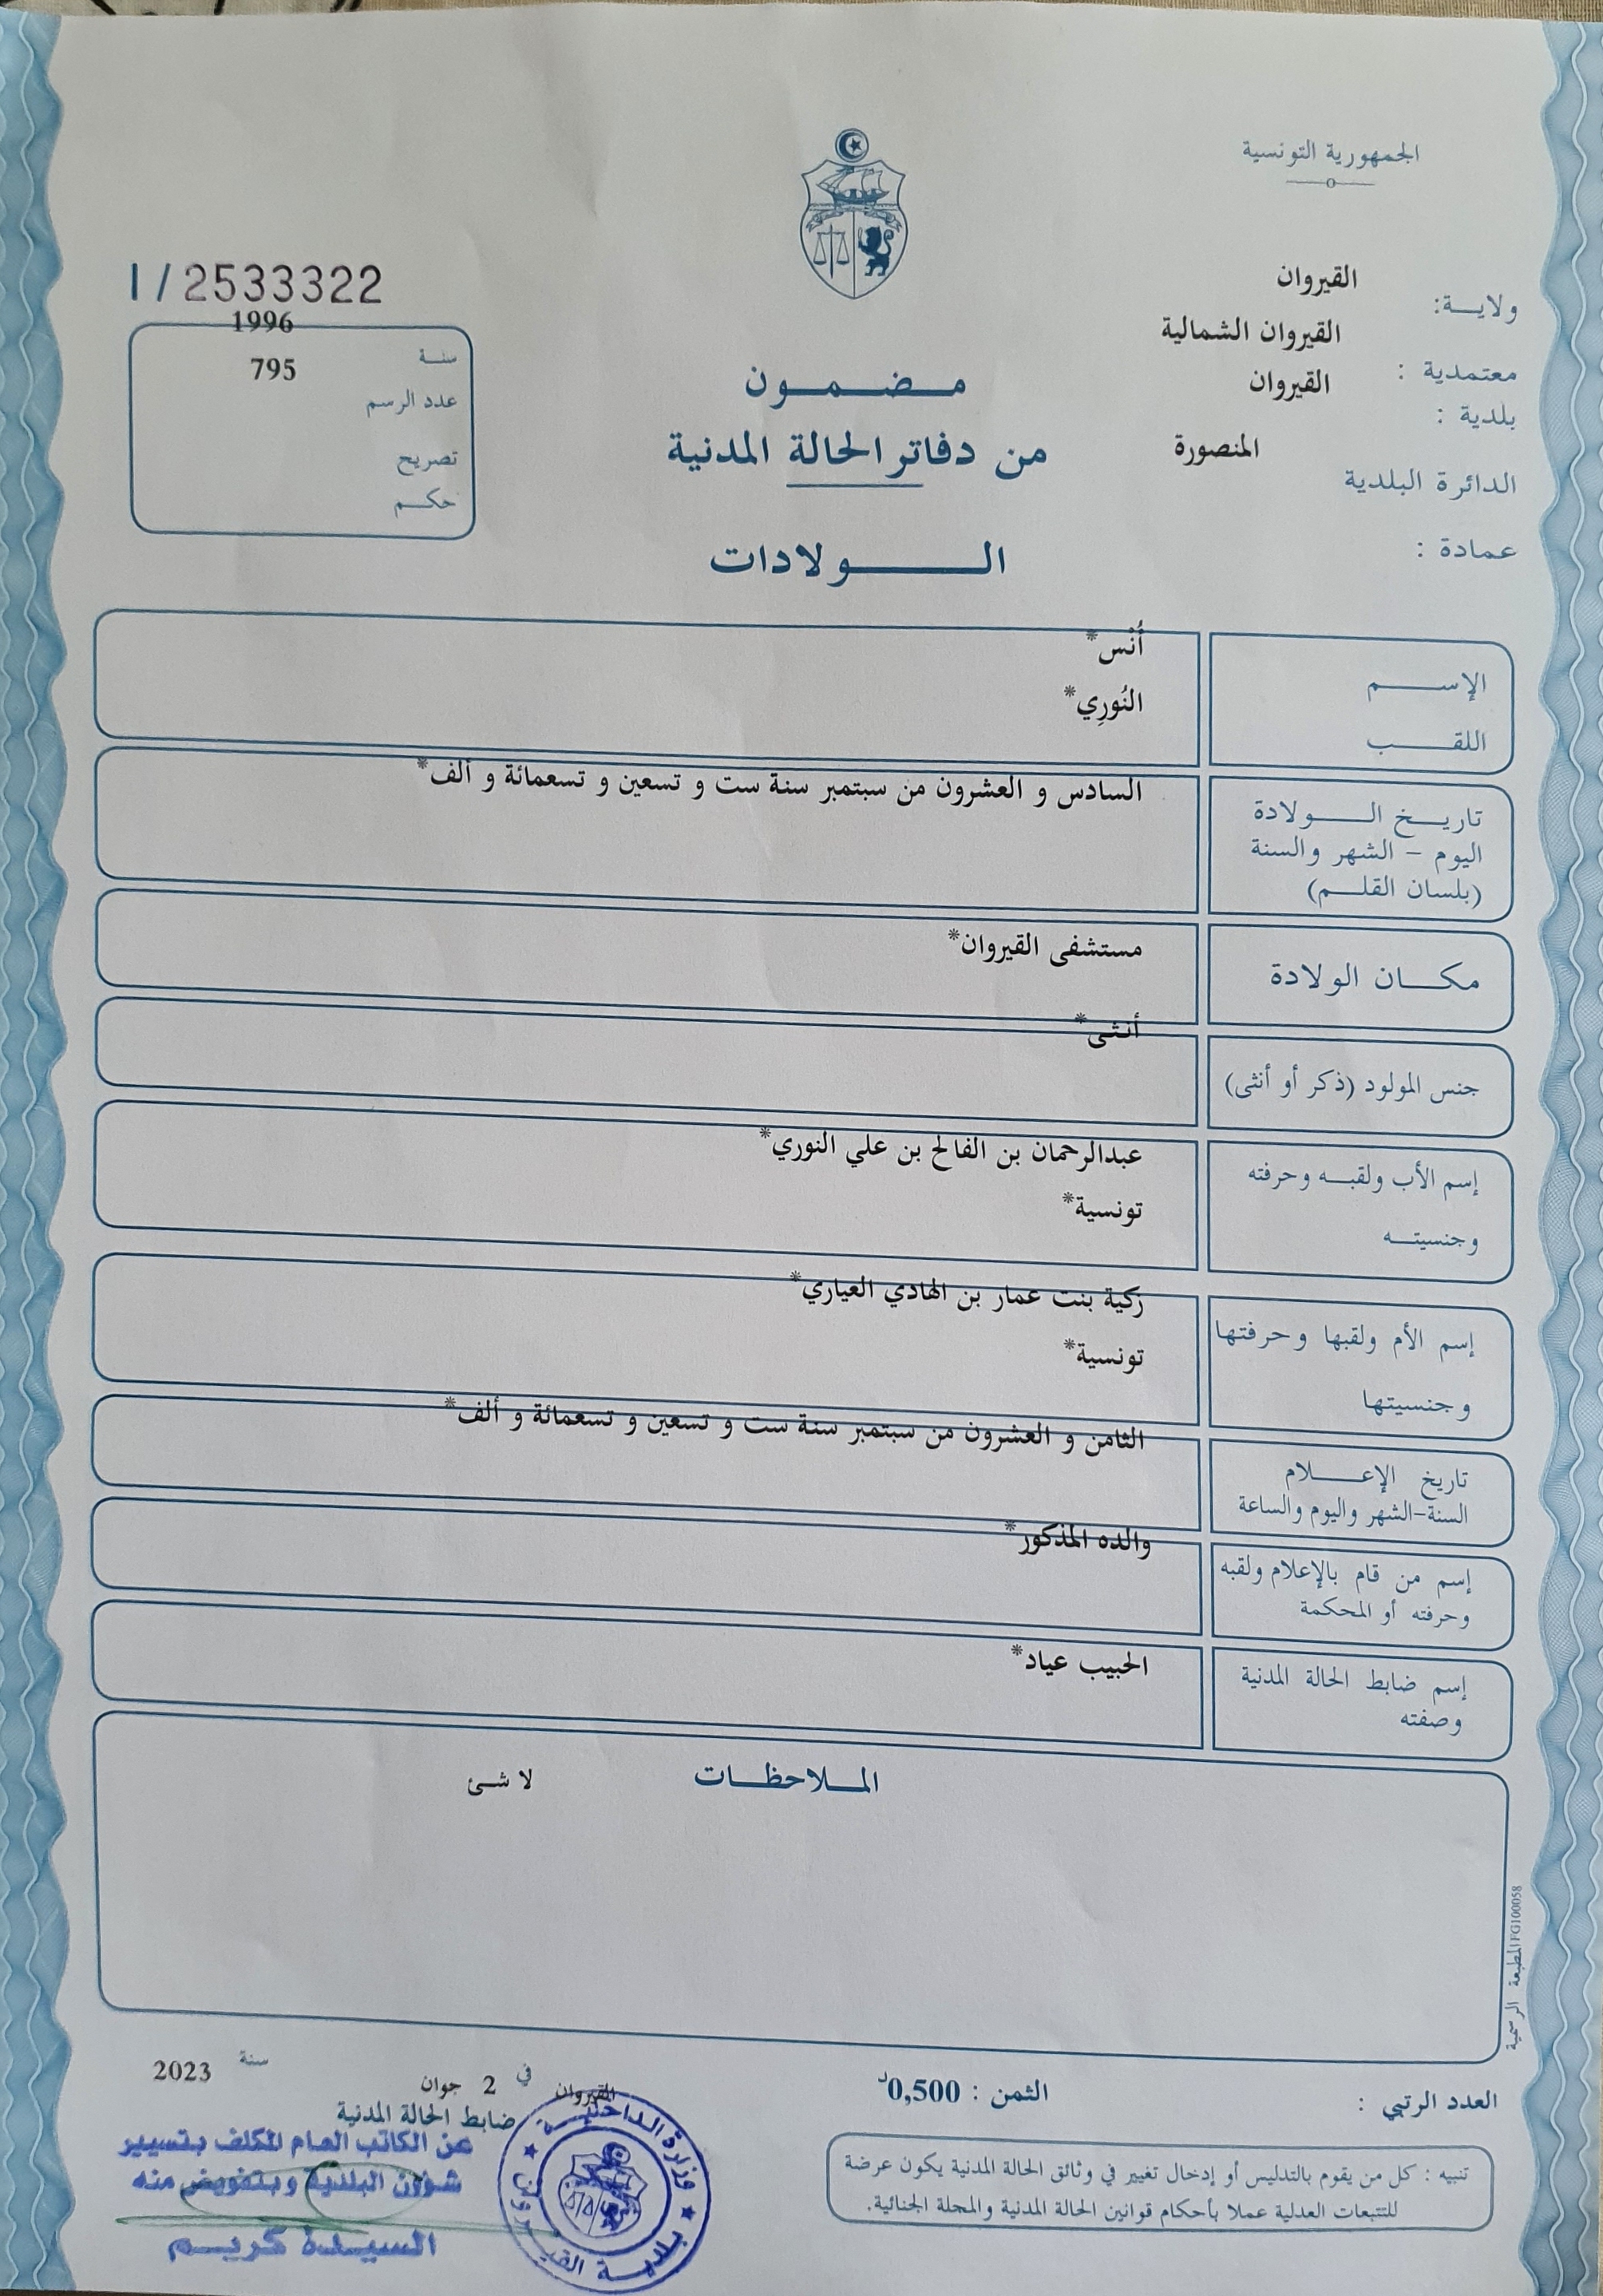 الجمهورية التونسية
ولايـــة: القيروان
معتمدية : القيروان الشمالية
بلدية : القيروان
الدائرة البلدية المنصورة
عمادة :
I/2533322
سنـة 1996
عدد الرسم 795
تصريح
حكـم
مـضـمـون
من دفاتر الحالة المدنية
الـــولادات
الإســـم أُنْس*
اللقـــب النُورِي*
تاريـخ الـــولادة
اليوم - الشهر والسنة
(بلسان القلـم)
السادس و العشرون من سبتمبر سنة ست و تسعين و تسعمائة و ألف*
مكـــان الولادة مستشفى القيروان*
جنس المولود (ذكر أو أنثى) أنثى*
إسم الأب ولقبـه وحرفته
وجنسيتـه
عبدالرحمان بن الفالح بن علي النوري*
تونسية*
إسم الأم ولقبها وحرفتها
وجنسيتها
زكية بنت عمار بن الهادي العياري*
تونسية*
تاريخ الإعـــلام
السنة-الشهر واليوم والساعة
الثامن و العشرون من سبتمبر سنة ست و تسعين و تسعمائة و ألف*
إسم من قام بالإعلام ولقبه
وحرفته أو المحكمة
والده المذكور*
إسم ضابط الحالة المدنية
وصفته
الحبيب عياد*
المـلاحظـات لا شئ
المطبعة الرسمية FG100058
العدد الرتبي :
الثمن : 0,500د
القيروان في 2 جوان سنة 2023
ضابط الحالة المدنية
عن الكاتب العام المكلف بتسيير
شؤون البلدية وبتفويض منه
السيدة كريم
وزارة الداخلية
بلدية القيروان
تنبيه : كل من يقوم بالتدليس أو إدخال تغيير في وثائق الحالة المدنية يكون عرضة
للتتبعات العدلية عملا بأحكام قوانين الحالة المدنية والمجلة الجنائية.